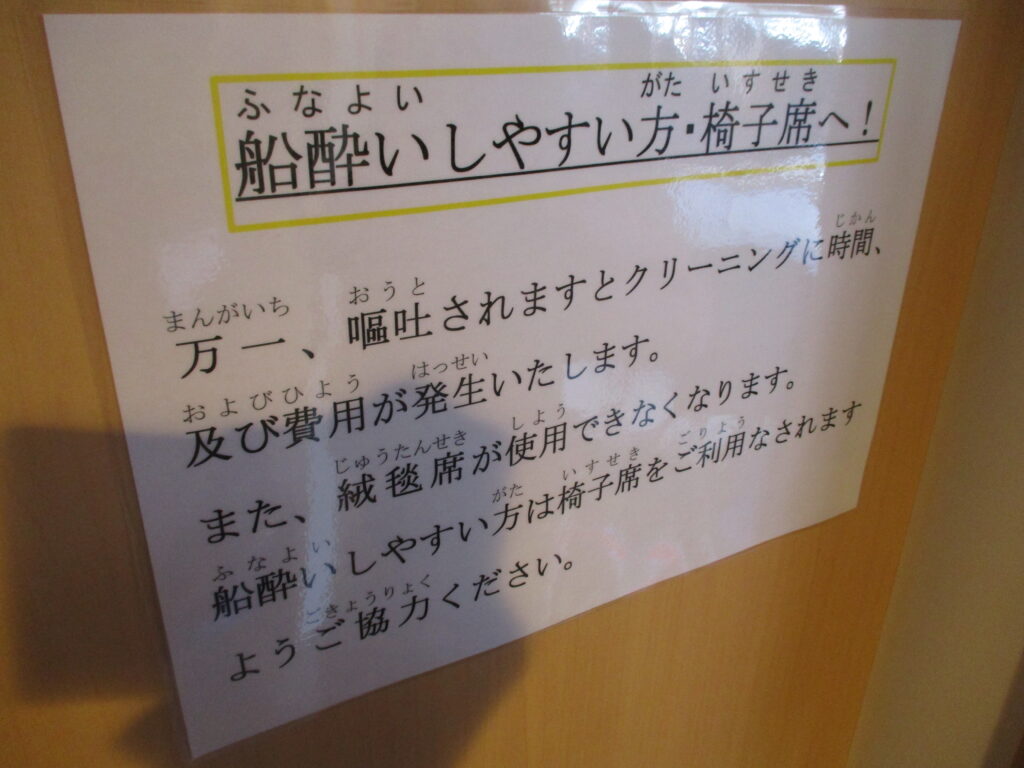 ふなよい がた いすせき
船酔いしやすい方・椅子席へ!
じかん
まんがいち おうと
万一、嘔吐されますとクリーニングに時間、
およびひよう はっせい
及び費用が発生いたします。
じゅうたんせき しよう
また、絨毯席が使用できなくなります。
ふなよい がた いすせき ごりよう
船酔いしやすい方は椅子席をご利用なされます
ごきょうりょく
ようご協力ください。